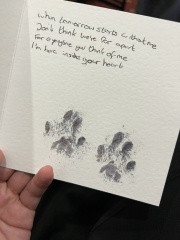 when tomorrow starts without me
Don't think we're far apart
For everytime you think of me
I'm here inside your heart